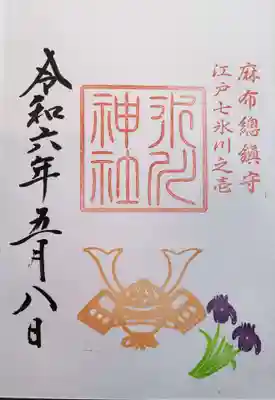 麻布總鎮守
江戸七氷川之壱
氷川
神社
令和六年五月八日